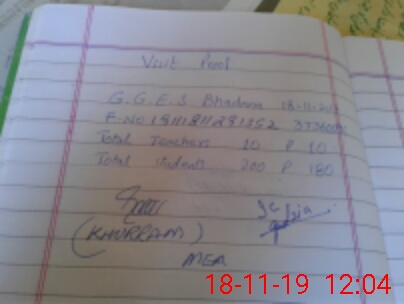 Visit Proof
G.G.E.S Bhadana 18-11-2019
F-No
Total Teachers 10 P 10
Total students 200 P 180
(KHURRAM)
MEA
18-11-19 12:04